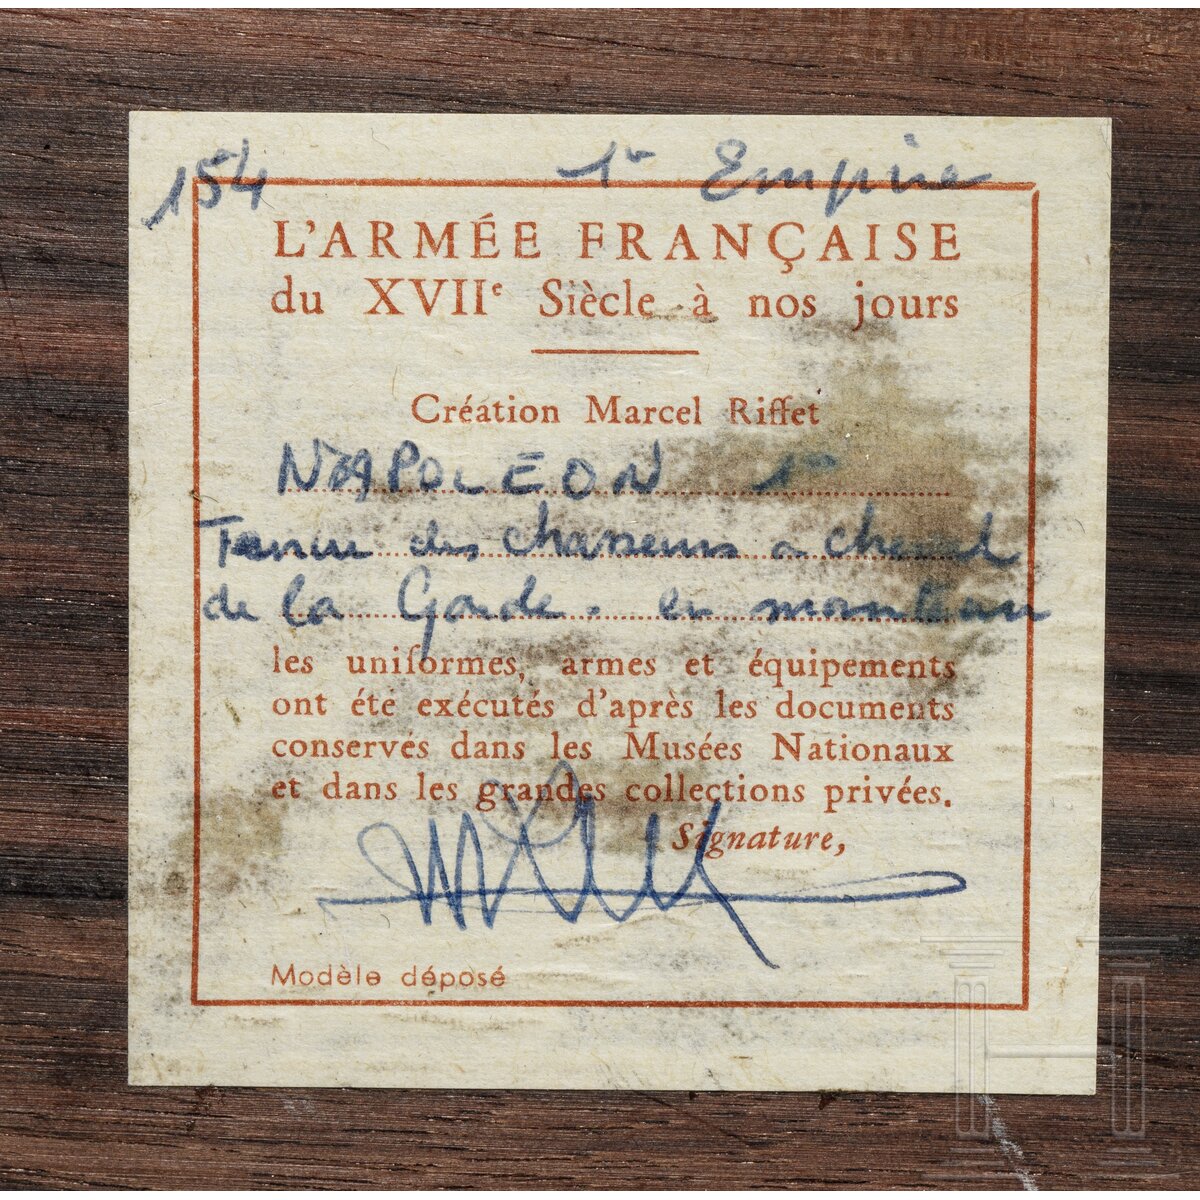 154 1er Empire
L'ARMÉE FRANÇAISE
du XVIIe Siècle à nos jours
Création Marcel Riffet
NAPOLÉON 1er
Tenue des chasseurs a cheval
de la Garde. en manteau
les uniformes, armes et équipements
ont été exécutés d'après les documents
conservés dans les Musées Nationaux
et dans les grandes collections privées.
Signature,
Modèle déposé